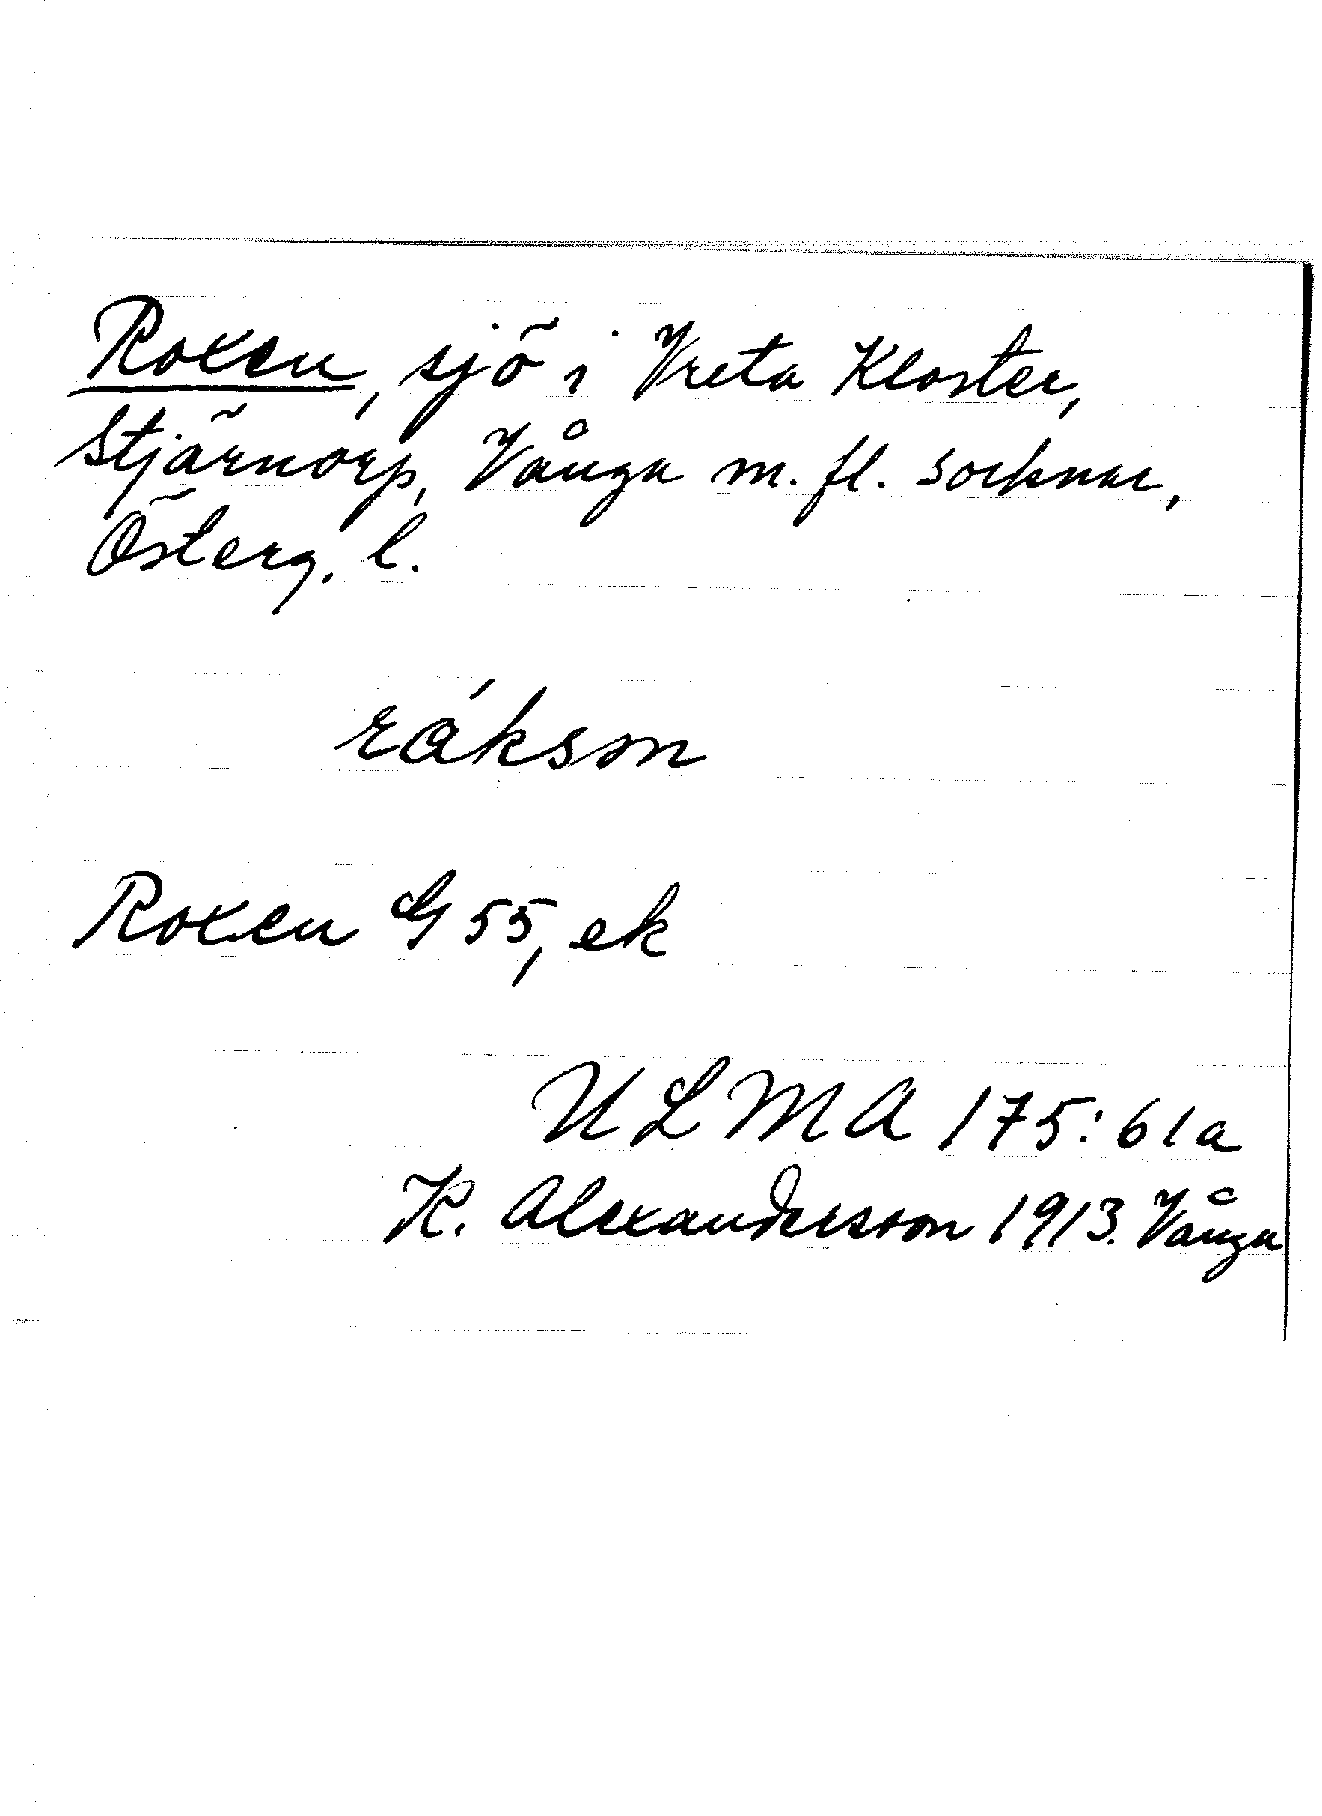 Roxen, sjö i Vreta Kloster,
Stjärnorp, Vånga m. fl. socknar,
Österg. l.
råkson
Roxen G 55, ek
ULMA 175:61a
K. Alexandersson 1913. Vånga